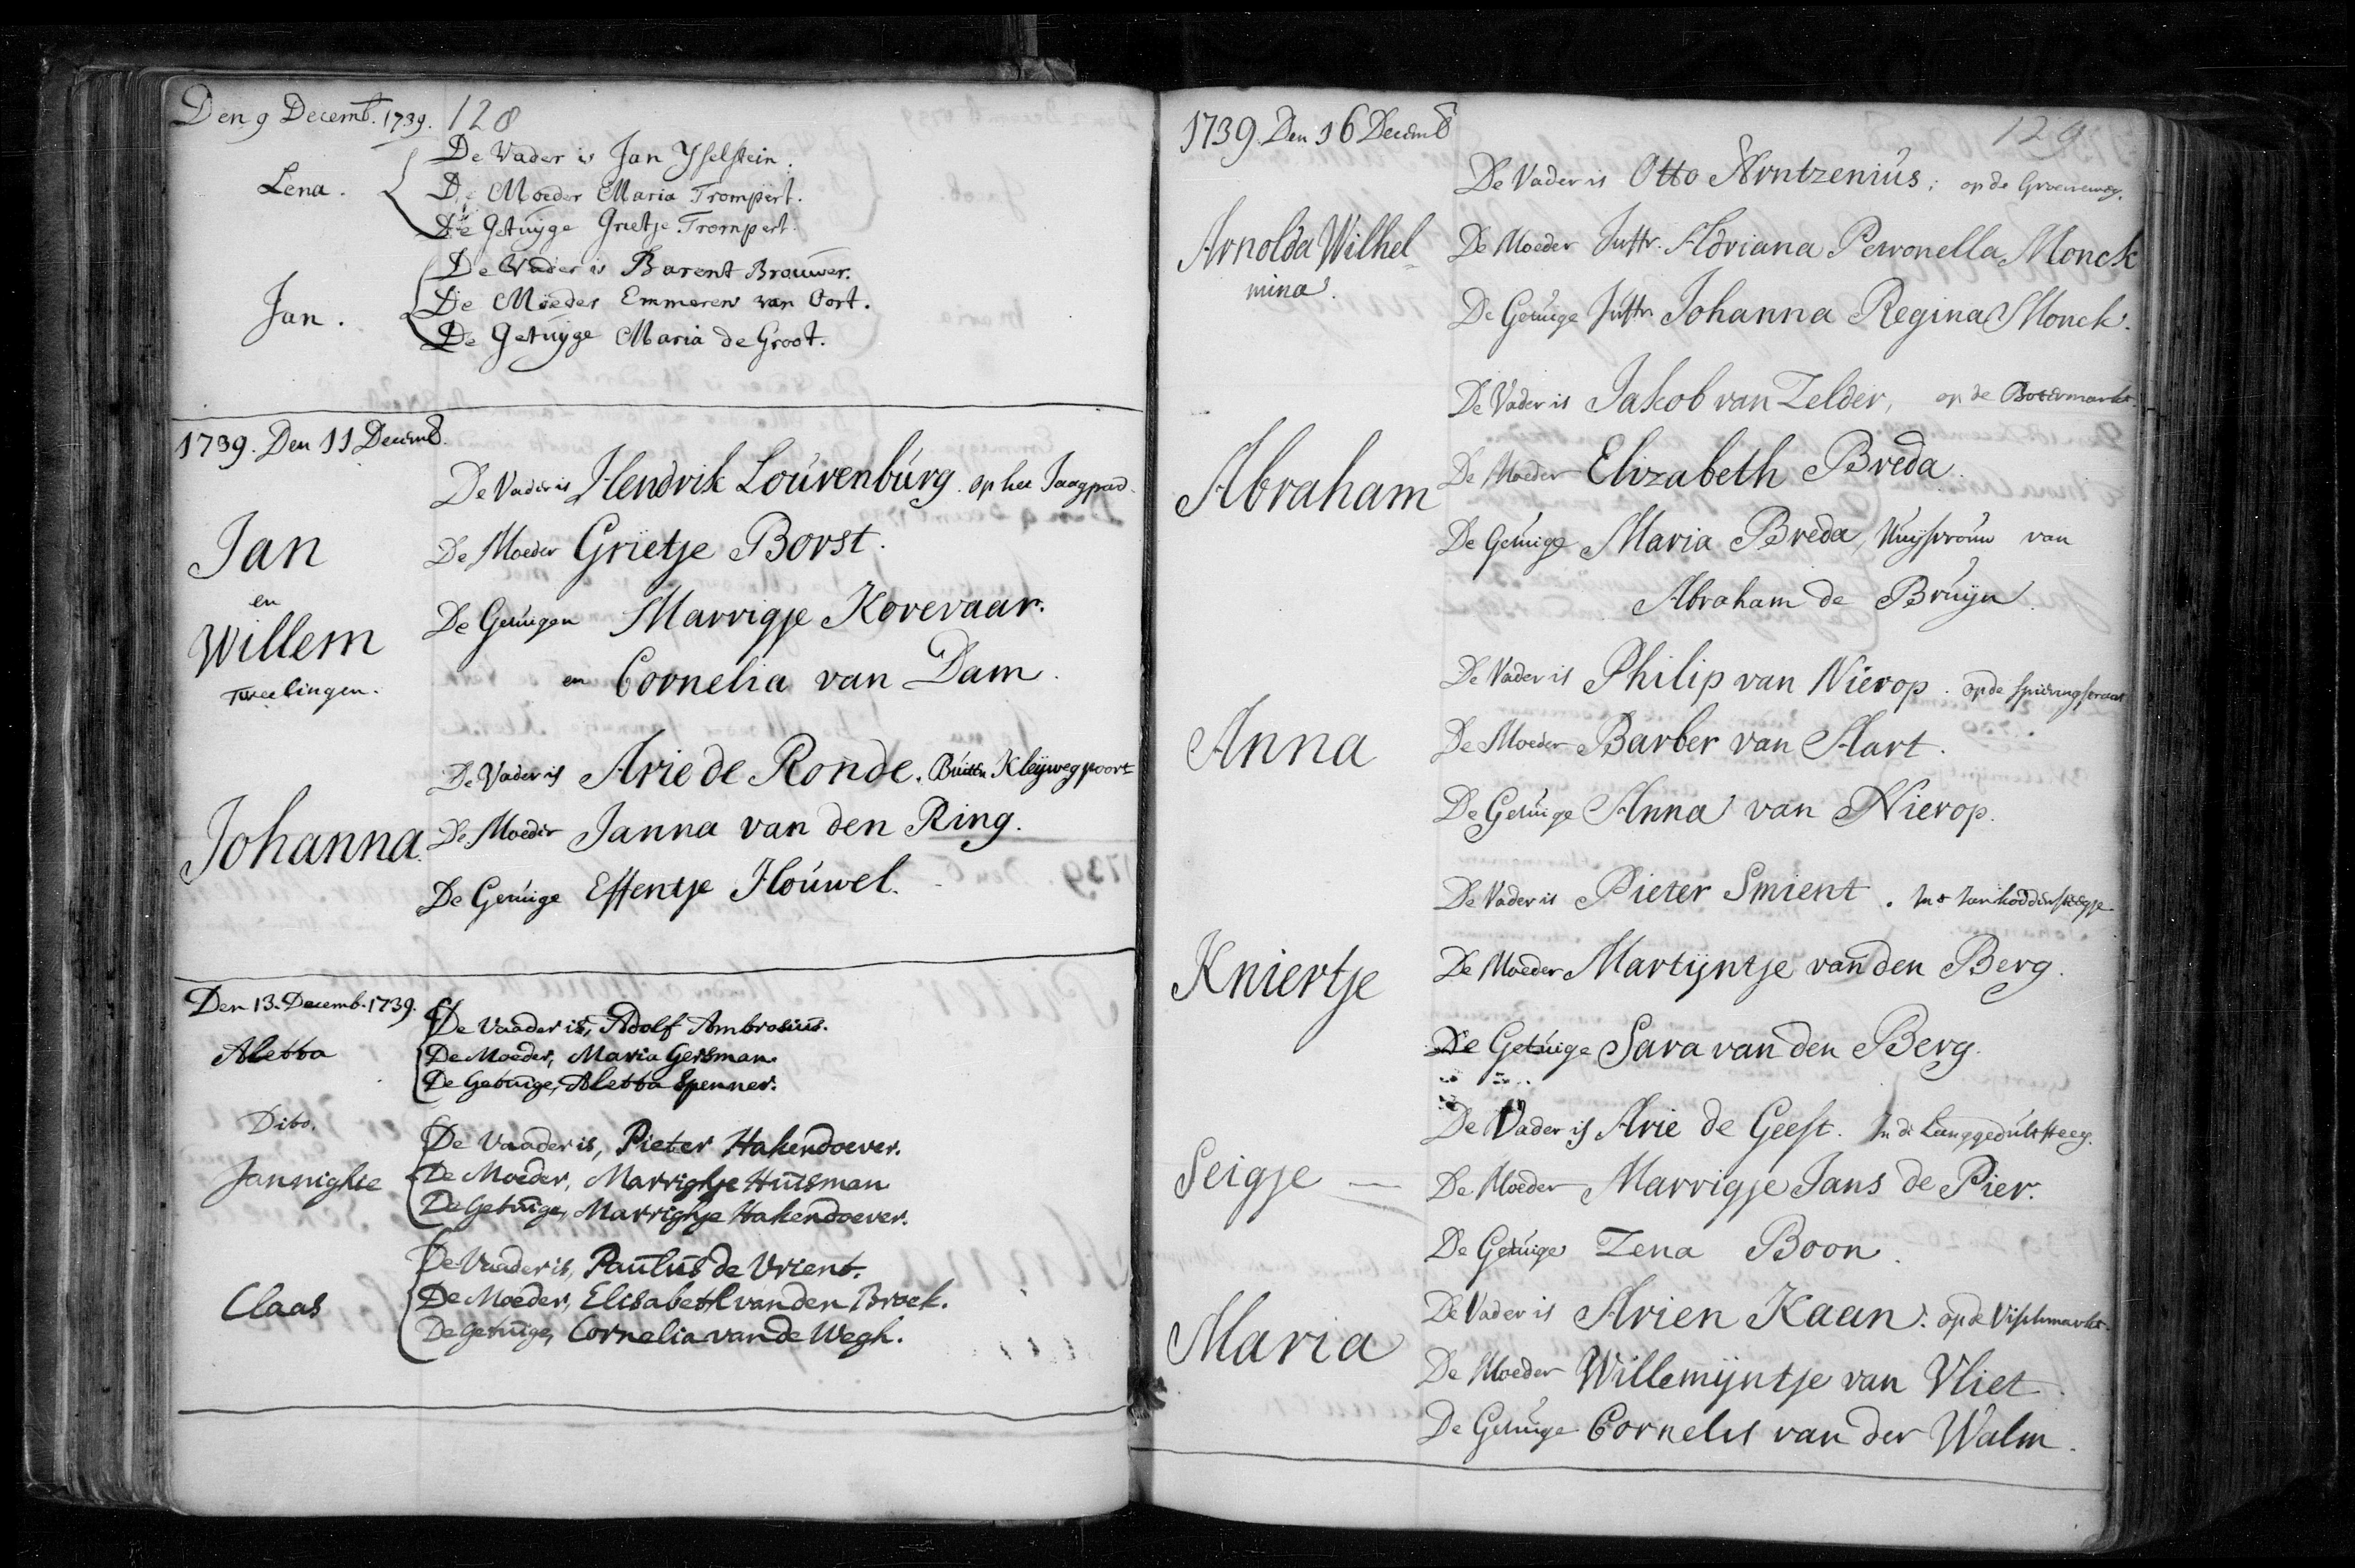 Den 9 Decemb. 1739. 128
Lena.
De Vader is Jan Yselstein.
De Moeder Maria Trompert.
De Getuyge Grietje Trompert.
Jan.
De Vader is Barent Brouwer.
De Moeder Emmeren van Oort.
De Getuyge Maria de Groot.
1739. Den 11 Decemb.
Jan
en
Willem
Tweelingen.
De Vader is Hendrik Loúrenbúrg. op het Jaagpad.
De Moeder Grietje Borst.
De Getuigen Marrigje Korevaar.
en Cornelia van Dam.
Johanna.
De Vader is Arie de Ronde. Buiten Kleijwegpoort
De Moeder Janna van den Ring.
De Getuige Effentje Hoúwel.
Den 13. Decemb. 1739.
Aletta
De Vaader is, Adolf Ambrosius.
De Moeder, Maria Gersman.
De Getuige, Aletta Spenner.
Dito.
Jannighie
De Vaader is, Pieter Hakendoever.
De Moeder, Marrighje Huisman
De Getuige, Marrighje Hakendoever.
Claas
De Vaader is, Paulus de Vrient.
De Moeder, Elisabeth van den Broek.
De Getuige, Cornelia van de Wegh.
1739. Den 16 Decemb
129
Arnolda Wilhel=
mina.
De Vader is Otto Arntzenius; op de Groeneweg.
De Moeder Juffr. Adriana Petronella Monck
De Getuige Juffr. Johanna Regina Monck.
Abraham
De Vader is Jakob van Zelder, op de Botermarkt.
De Moeder Elizabeth Breda.
De Getuige Maria Breda, Huijsvrouw van
Abraham de Bruijn.
Anna
De Vader is Philip van Nierop. op de Spieringstraat
De Moeder Barber van Hart.
De Getuige Anna van Nierop.
Kniertje
De Vader is Pieter Smient.
De Moeder Martijntje van den Berg.
De Getuige Sara van den Berg.
Seigje
De Vader is Arie de Geest. In de Langgedultsteeg.
De Moeder Marrigje Jans de Pier.
De Getuige Zena Boon.
Maria
De Vader is Arien Kaan. op de Vischmarkt.
De Moeder Willemijntje van Vliet.
De Getuige Cornelis van der Walm.